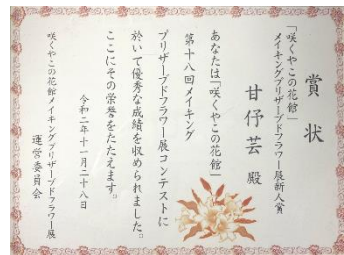 賞状
「咲くやこの花館」
メイキングプリザーブドフラワー展新人賞
甘伃芸 殿
あなたは「咲くやこの花館」
第十八回メイキング
プリザーブドフラワー展コンテストに
於いて優秀な成績を収められました。
ここにその栄誉をたたえます。
令和二年十一月二十八日
咲くやこの花館メイキングプリザーブドフラワー展
運営委員会